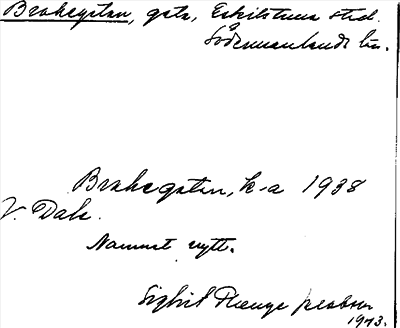 Brahegatan, gata, Eskilstuna stad.
Södermanlands län.
Brahegatan, k-a 1938
V. Dale.
Namnet nytt.
Sigfrid
1943.